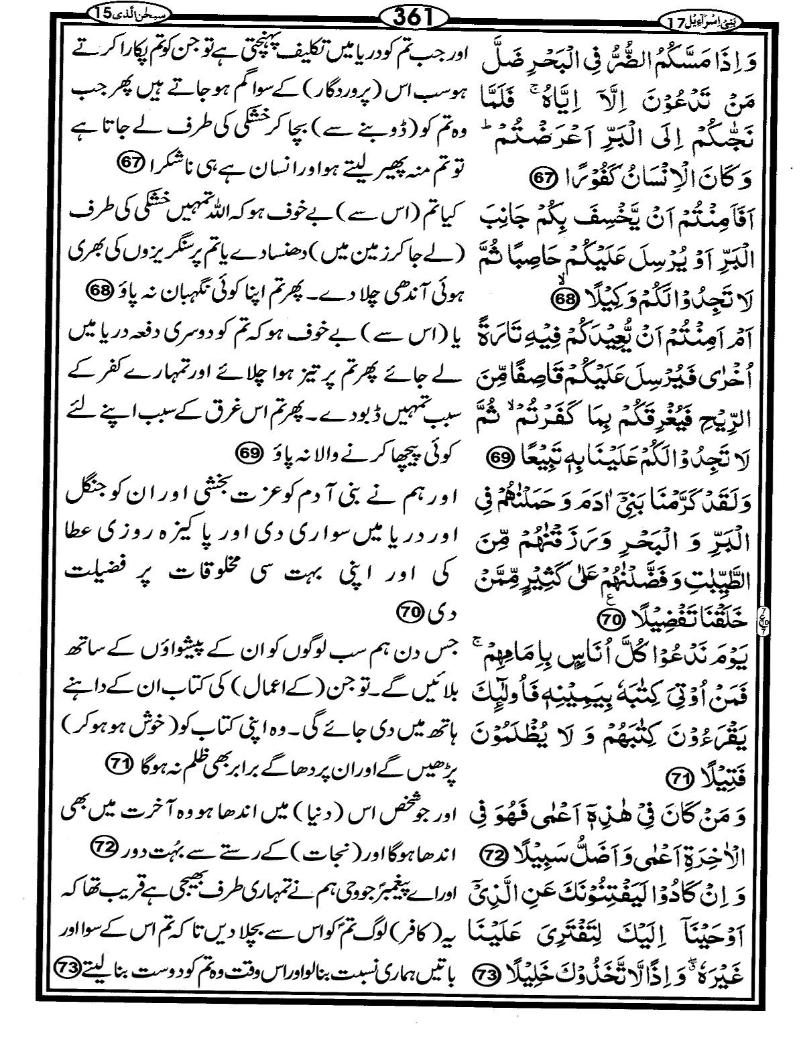 بنی اسرآءیل 17
361
سبحٰن الذی 15
وَاِذَا مَسَّكُمُ الضُّرُّ فِی الْبَحْرِ ضَلَّ
مَنْ تَدْعُوْنَ اِلَّاۤ اِیَّاهُ ۚ فَلَمَّا
نَجّٰىكُمْ اِلَى الْبَرِّ اَعْرَضْتُمْ ؕ
وَكَانَ الْاِنْسَانُ كَفُوْرًا 67
اَفَاَمِنْتُمْ اَنْ یَّخْسِفَ بِكُمْ جَانِبَ
الْبَرِّ اَوْ یُرْسِلَ عَلَیْكُمْ حَاصِبًا ثُمَّ
لَا تَجِدُوْا لَكُمْ وَكِیْلًا ۙ 68
اَمْ اَمِنْتُمْ اَنْ یُّعِیْدَكُمْ فِیْهِ تَارَةً
اُخْرٰى فَیُرْسِلَ عَلَیْكُمْ قَاصِفًا مِّنَ
الرِّیْحِ فَیُغْرِقَكُمْ بِمَا كَفَرْتُمْ ۙ ثُمَّ
لَا تَجِدُوْا لَكُمْ عَلَیْنَا بِهٖ تَبِیْعًا 69
وَلَقَدْ كَرَّمْنَا بَنِیْۤ اٰدَمَ وَحَمَلْنٰهُمْ فِی
الْبَرِّ وَ الْبَحْرِ وَرَزَقْنٰهُمْ مِّنَ
الطَّیِّبٰتِ وَفَضَّلْنٰهُمْ عَلٰى كَثِیْرٍ مِّمَّنْ
خَلَقْنَا تَفْضِیْلًا 70 ع
یَوْمَ نَدْعُوْا كُلَّ اُنَاسٍۭ بِاِمَامِهِمْ ۚ
فَمَنْ اُوْتِیَ كِتٰبَهٗ بِیَمِیْنِهٖ فَاُولٰٓىِٕكَ
یَقْرَءُوْنَ كِتٰبَهُمْ وَ لَا یُظْلَمُوْنَ
فَتِیْلًا 71
وَ مَنْ كَانَ فِیْ هٰذِهٖۤ اَعْمٰى فَهُوَ فِی
الْاٰخِرَةِ اَعْمٰى وَاَضَلُّ سَبِیْلًا 72
وَ اِنْ كَادُوْا لَیَفْتِنُوْنَكَ عَنِ الَّذِیْۤ
اَوْحَیْنَاۤ اِلَیْكَ لِتَفْتَرِیَ عَلَیْنَا
غَیْرَهٗ ۖ وَ اِذًا لَّاتَّخَذُوْكَ خَلِیْلًا 73
اور جب تم کو دریا میں تکلیف پہنچتی ہے تو جن کو تم پکارا کرتے
ہو سب اس (پروردگار) کے سوا گم ہو جاتے ہیں پھر جب
وہ تم کو (ڈوبنے سے) بچا کر خشکی کی طرف لے جاتا ہے
تو تم منہ پھیر لیتے ہو اور انسان ہے ہی ناشکرا 67
کیا تم (اس سے) بے خوف ہو کہ اللہ تمہیں خشکی کی طرف
(لے جا کر زمین میں) دھنسا دے یا تم پر سنگریزوں کی بھری
ہوئی آندھی چلا دے۔ پھر تم اپنا کوئی نگہبان نہ پاؤ 68
یا (اس سے) بے خوف ہو کہ تم کو دوسری دفعہ دریا میں
لے جائے پھر تم پر تیز ہوا چلائے اور تمہارے کفر کے
سبب تمہیں ڈبو دے۔ پھر تم اس غرق کے سبب اپنے لئے
کوئی پیچھا کرنے والا نہ پاؤ 69
اور ہم نے بنی آدم کو عزت بخشی اور ان کو جنگل
اور دریا میں سواری دی اور پاکیزہ روزی عطا
کی اور اپنی بہت سی مخلوقات پر فضیلت
دی 70
جس دن ہم سب لوگوں کو ان کے پیشواؤں کے ساتھ
بلائیں گے۔ تو جن (کے اعمال) کی کتاب ان کے داہنے
ہاتھ میں دی جائے گی۔ وہ اپنی کتاب کو (خوش ہو ہو کر)
پڑھیں گے اور ان پر دھاگے برابر بھی ظلم نہ ہوگا 71
اور جو شخص اس (دنیا) میں اندھا ہو وہ آخرت میں بھی
اندھا ہوگا اور (نجات) کے رستے سے بہت دور 72
اور اے پیغمبر جو وحی ہم نے تمہاری طرف بھیجی ہے قریب تھا کہ
یہ (کافر) لوگ تم کو اس سے بچلا دیں تاکہ تم اس کے سوا اور
باتیں ہماری نسبت بنا لو اور اس وقت وہ تم کو دوست بنا لیتے 73